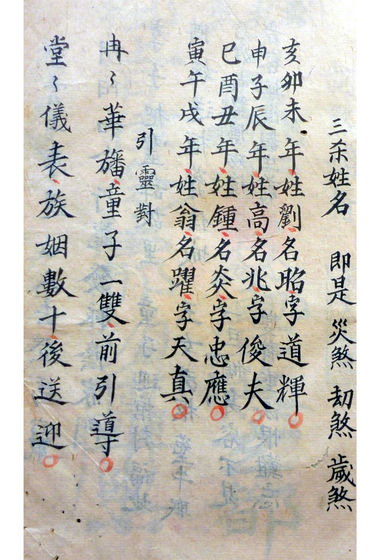 三杀姓名 即是 災煞 刧煞 歲煞
亥卯未年姓劉名昭字道輝
申子辰年姓高名兆字俊夫
巳酉丑年姓鍾名炎字忠應
寅午戌年姓翁名躍字天真
引靈對
冉々華旛童子一雙前引導
堂々儀表族姻數十後送迎